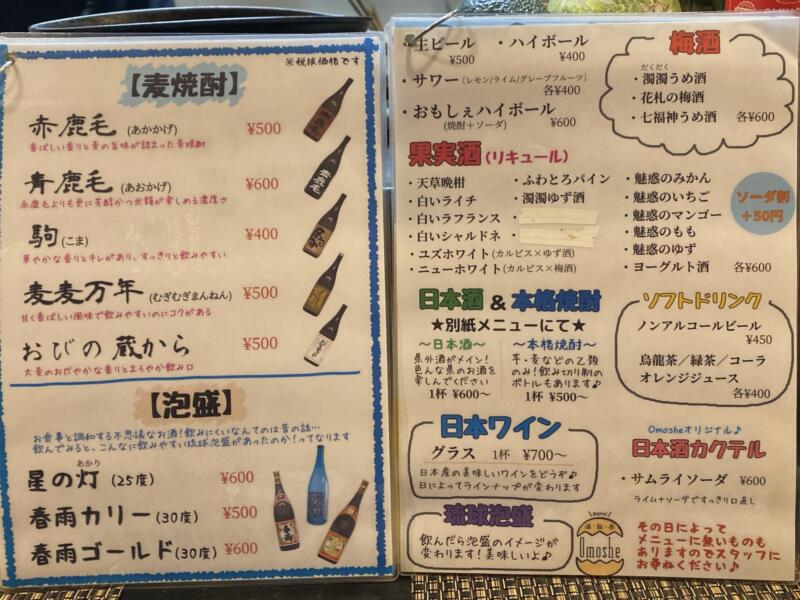 ※税抜価格です
【麦焼酎】
赤鹿毛 (あかかげ) ¥500
香ばしい香りと麦の旨味が詰まった麦焼酎
青鹿毛 (あおかげ) ¥600
赤鹿毛よりも更に芳醇かつ余韻が楽しめる濃厚さ
駒 (こま) ¥400
華やかな香りとキレがあり、すっきりと飲みやすい
麦麦万年 (むぎむぎまんねん) ¥500
甘く香ばしい風味で飲みやすいのにコクがある
おびの蔵から ¥500
大麦のおだやかな香りとまろやか飲み口
【泡盛】
お食事と調和する不思議なお酒!飲みにくいなんてのは昔の話…
飲んでみると、こんなに飲みやすい琉球泡盛があったのか!ってなります
あかり
星の灯 (25度) ¥600
春雨カリー (30度) ¥500
春雨ゴールド (30度) ¥600
・生ビール ¥500
・ハイボール ¥400
・サワー (レモン/ライム/グレープフルーツ) 各¥400
・おもしぇハイボール
(焼酎+ソーダ) ¥600
梅酒
だくだく
・濁濁うめ酒
・花札の梅酒
・七福神うめ酒 各¥600
果実酒 (リキュール)
・天草晩柑
・白いライチ
・白いラフランス
・白いシャルドネ
・ユズホワイト (カルピス×ゆず酒)
・ニューホワイト (カルピス×梅酒)
・ふわとろパイン
・濁濁ゆず酒
・魅惑のみかん
・魅惑のいちご
・魅惑のマンゴー
・魅惑のもも
・魅惑のゆず
・ヨーグルト酒 各¥600
ソーダ割
+50円
日本酒 & 本格焼酎
★別紙メニューにて★
～日本酒～
県外酒がメイン!
色んな県のお酒を
楽しんでください
1杯 ¥600～
～本格焼酎～
芋・麦などの乙類
のみ!飲み切り制の
ボトルもあります♪
1杯 ¥500～
ソフトドリンク
ノンアルコールビール
¥450
烏龍茶/緑茶/コーラ
オレンジジュース
各¥400
日本ワイン
グラス 1杯 ¥700～
日本産の美味しいワインをどうぞ♪
日によってラインナップが変わります
Omosheオリジナル♪
日本酒カクテル
・サムライソーダ ¥600
ライム+ソーダですっきり口直し
琉球泡盛
飲んだら泡盛のイメージが
変わります!美味しいよ♪
Omoshe
その日によって
メニューに無いものも
ありますのでスタッフに
お尋ねください♪